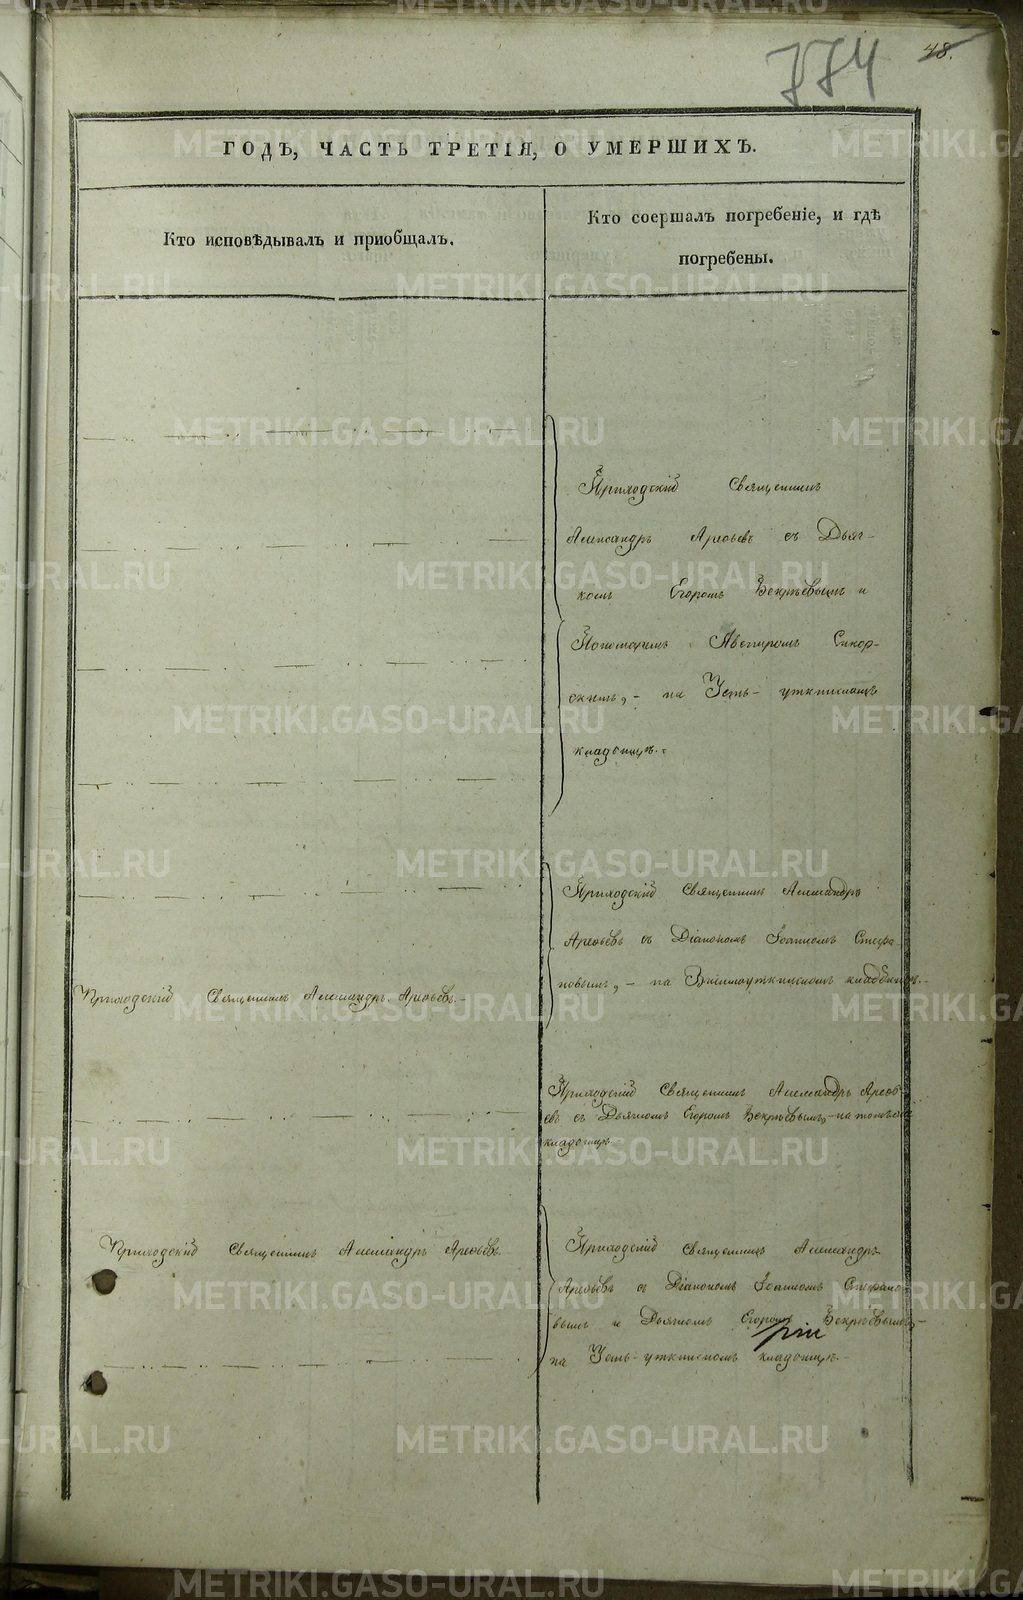 774
48.
ГОДЪ, ЧАСТЬ ТРЕТІЯ, О УМЕРШИХЪ.
Кто исповѣдывалъ и приобщалъ.
Кто соершалъ погребеніе, и гдѣ
погребены.
Приходскій Священникъ
Александръ Арефьевъ съ Дьяч-
комъ Егоромъ Некрѣевымъ и
Пономаремъ Авениромъ Сикор-
скимъ, – на Усть-уткинскомъ
кладбищѣ. –
Приходскій Священникъ Александръ
Арефьевъ съ Діакономъ Іоанномъ Стефа-
новымъ, – на кладбищѣ. –
Приходскій Священникъ Александръ Арефьевъ. –
Приходскій Священникъ Александръ Арефь-
евъ съ Дьячкомъ Егоромъ на томъ же
кладбищѣ.
Приходскій Священникъ Александръ Арефьевъ.
Приходскій Священникъ Александръ
Арефьевъ съ Діакономъ Іоанномъ Стефано-
вымъ и Дьячкомъ Егоромъ
на Усть-уткинскомъ кладбищѣ. –
METRIKI.GASO-URAL.RU